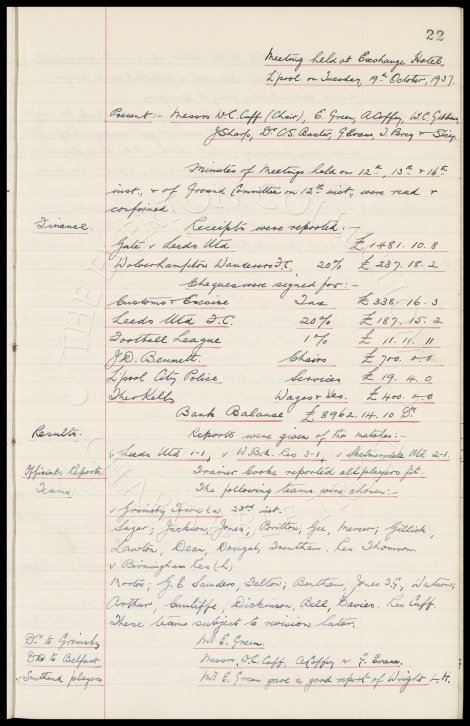 22
Meeting held at Exchange Hotel,
L'pool on Tuesday, 19th October, 1937
Present:- Messrs W.C. Cuff (Chair), E. Green, A Coffey, W.C. Gibbins,
J Sharp, Dr C.S. Baxter, G Evans, J. Percy & Secy
Minutes of Meetings held on 12th, 13th & 16th
inst, & of Ground Committee on 12th inst, were read &
confirmed.
Finance. Receipts were reported:-
Gate v Leeds Utd £1481. 10. 8
Wolverhampton Wanderers F.C. 20% £237. 18. 2
Cheques were signed for:-
Customs & Excise Tax £338. 16. 3
Leeds Utd F.C. 20% £187. 15. 2
Football League 1% £11. 11. 11
J.D. Bennett. Chairs £700. 0. 0
L'pool City Police Services £19. 4. 0
Theo Kelly Wages &c. £400. 0. 0
Bank Balance £8962. 14. 10 Dr
Results. Reports were given of the matches:-
v Leeds Utd 1-1, v W.B.A. Res 3-1, v Skelmersdale Utd 2-1.
Officials Reports. Trainer Cooke reported all players fit.
Teams. The following teams were chosen:-
v Grimsby Town (a) 23rd inst.
Sagar; Jackson, Jones; Britton, Gee, Mercer; Gillick,
Lawton, Dean, Dougal, Trentham. Res Thomson.
v Birmingham Res (h)
Morton; G.E. Saunders, Felton; Bentham, Jones T.G, Watson;
Arthur, Cunliffe, Dickinson, Bell, Davies. Res Cuff.
These teams subject to revision later.
Dr. to Grimsby Mr E. Green.
Do to Belfast Messrs W.C. Cuff, A Coffey & G. Evans.
Southend players Mr E. Green gave a good report of Wright L.H.